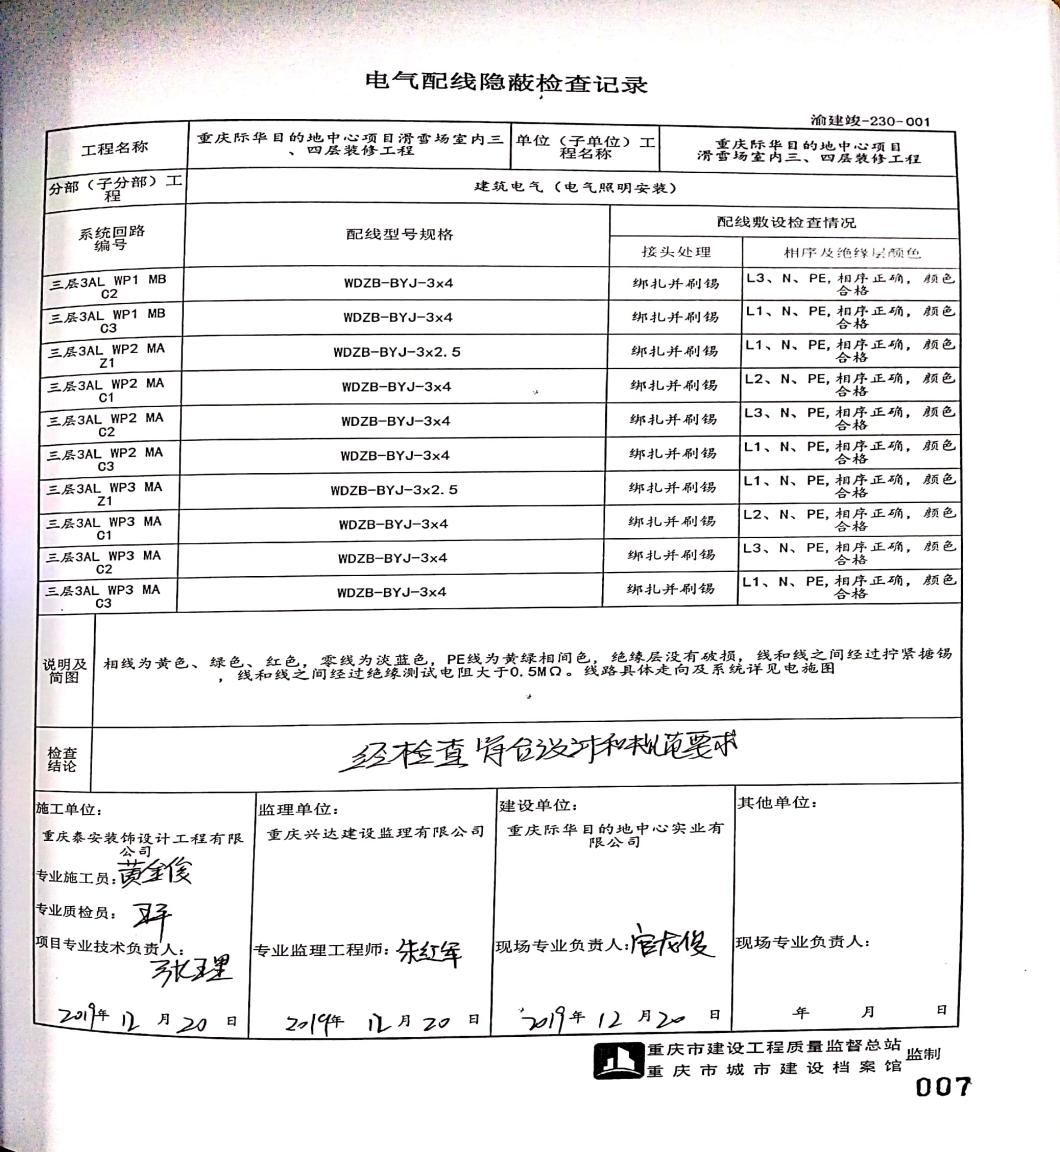 电气配线隐蔽检查记录
渝建竣-230-001
工程名称
重庆际华目的地中心项目滑雪场室内三
、四层装修工程
单位（子单位）工
程名称
重庆际华目的地中心项目
滑雪场室内三、四层装修工程
分部（子分部）工
程
建筑电气（电气照明安装）
系统回路
编号
配线型号规格
配线敷设检查情况
接头处理
相序及绝缘层颜色
三层3AL WP1 MB
C2
WDZB-BYJ-3x4
绑扎并刷锡
L3、N、PE,相序正确，颜色
合格
三层3AL WP1 MB
C3
WDZB-BYJ-3x4
绑扎并刷锡
L1、N、PE,相序正确，颜色
合格
三层3AL WP2 MA
Z1
WDZB-BYJ-3x2.5
绑扎并刷锡
L1、N、PE,相序正确，颜色
合格
三层3AL WP2 MA
C1
WDZB-BYJ-3x4
绑扎并刷锡
L2、N、PE,相序正确，颜色
合格
三层3AL WP2 MA
C2
WDZB-BYJ-3x4
绑扎并刷锡
L3、N、PE,相序正确，颜色
合格
三层3AL WP2 MA
C3
WDZB-BYJ-3x4
绑扎并刷锡
L1、N、PE,相序正确，颜色
合格
三层3AL WP3 MA
Z1
WDZB-BYJ-3x2.5
绑扎并刷锡
L1、N、PE,相序正确，颜色
合格
三层3AL WP3 MA
C1
WDZB-BYJ-3x4
绑扎并刷锡
L2、N、PE,相序正确，颜色
合格
三层3AL WP3 MA
C2
WDZB-BYJ-3x4
绑扎并刷锡
L3、N、PE,相序正确，颜色
合格
三层3AL WP3 MA
C3
WDZB-BYJ-3x4
绑扎并刷锡
L1、N、PE,相序正确，颜色
合格
说明及
简图
相线为黄色、绿色、红色，零线为淡蓝色，PE线为黄绿相间色，绝缘层没有破损，线和线之间经过拧紧搪锡
，线和线之间经过绝缘测试电阻大于0.5MΩ。线路具体走向及系统详见电施图
检查
结论
经检查符合设计和规范要求
施工单位：
重庆泰安装饰设计工程有限
公司
专业施工员：黄金俊
专业质检员：
项目专业技术负责人：
2019年12月20日
监理单位：
重庆兴达建设监理有限公司
专业监理工程师：朱红军
2019年12月20日
建设单位：
重庆际华目的地中心实业有
限公司
现场专业负责人：官龙俊
2019年12月20日
其他单位：
现场专业负责人：
年 月 日
重庆市建设工程质量监督总站
重庆市城市建设档案馆
监制
007